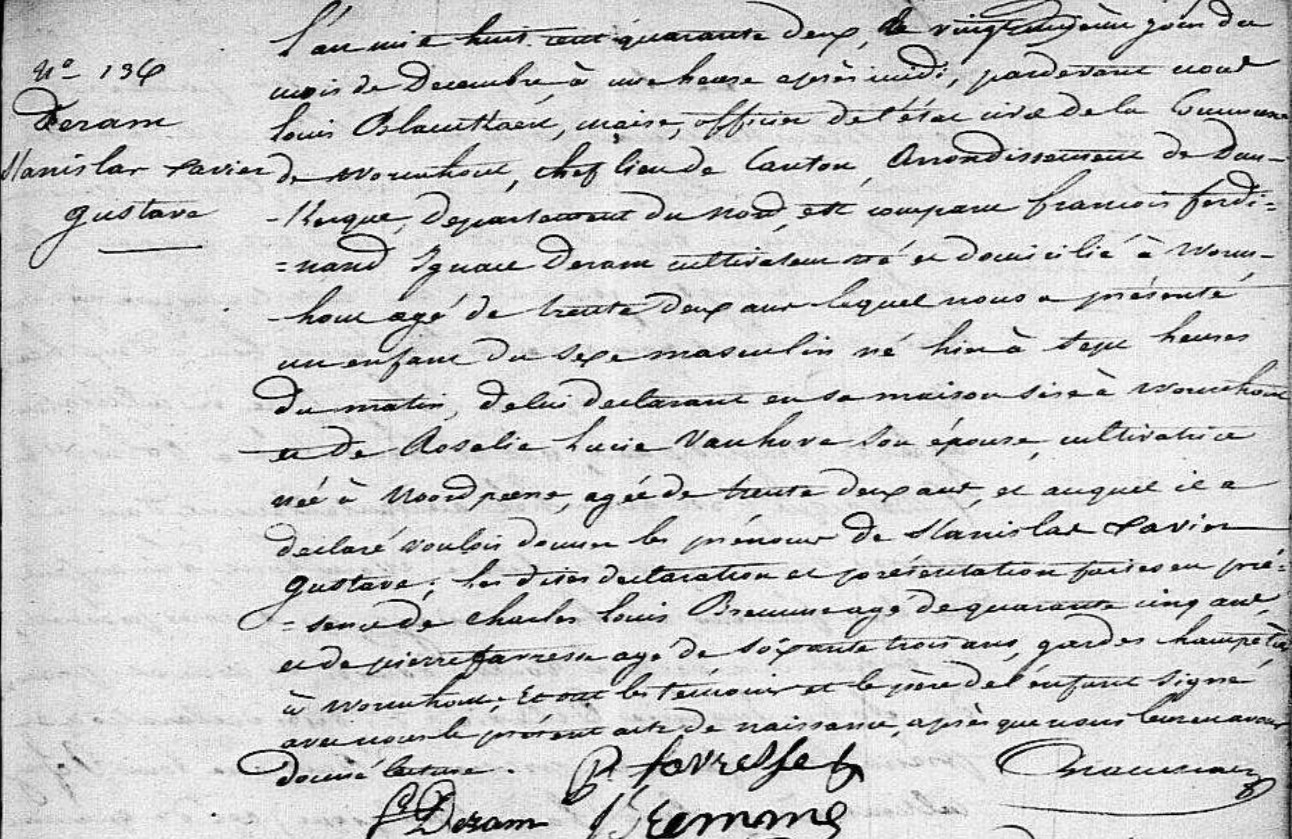 N° 136
Deram
Stanislas Xavier
Gustave
L'an mil huit cent quarante deux, le vingt jour du
mois de Decembre à une heure après midi, pardevant nous
Louis Blanckaert, maire, officier de l'état civil de la Commune
de Wormhout, chef lieu de Canton, Arrondissement de Dun-
-kerque, département du nord, est comparu françois ferdi=
=nand Ignace Deram cultivateur né et domicilié à Worm-
-hout agé de trente deux ans lequel nous a présenté
un enfant du sexe masculin né hier à sept heures
du matin, de lui déclarant en sa maison sise à Wormhout
et de Rosalie Lucie Vanhove son épouse, cultivatrice
née à Noordpeene, agée de trente deux ans, et auquel il a
declaré vouloir donner les prénoms de Stanislas Xavier
Gustave; les dites declaration et présentation faites en pré=
=sence de Charles Louis Bremme agé de quarante cinq ans,
et de pierre favresse agé de soixante trois ans, gardes champêtre
à Wormhout; Et ont les témoins et le père de l'enfant signé
avec nous le présent acte de naissance, après que nous leur en avons
donné lecture.
P. favresse
f Deram Bremme